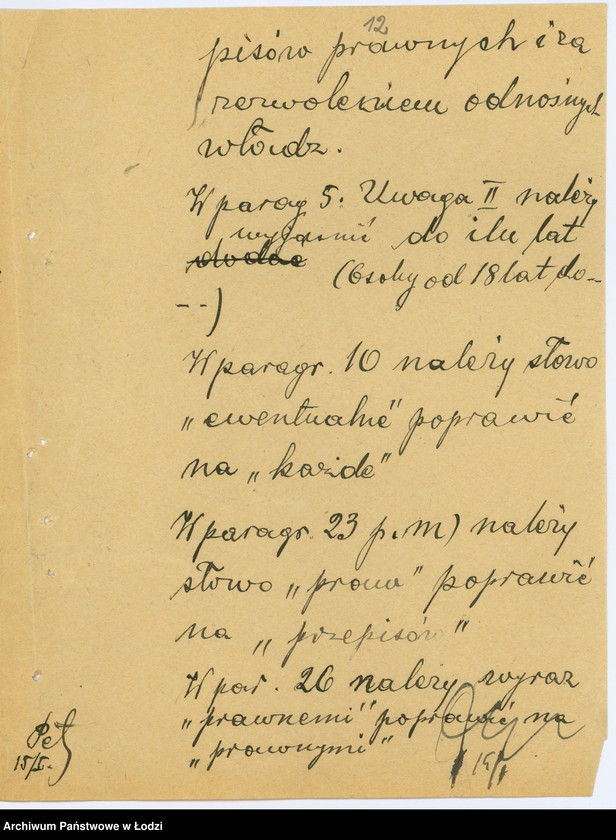 12
pisów prawnych i za
zezwoleniem odnośnych
władz.
W parag 5. Uwaga II należy
wyjaśnić do ilu lat
dodać (Osoby od 18 lat do --
--)
W paragr. 10 należy słowo
„ewentualne" poprawić
na „każde"
W paragr. 23 p. m) należy
słowo „praw" poprawić
na „przepisów"
W par. 26 należy wyraz
„prawnemi" poprawić na
„prawnymi"
15/I.
Archiwum Państwowe w Łodzi